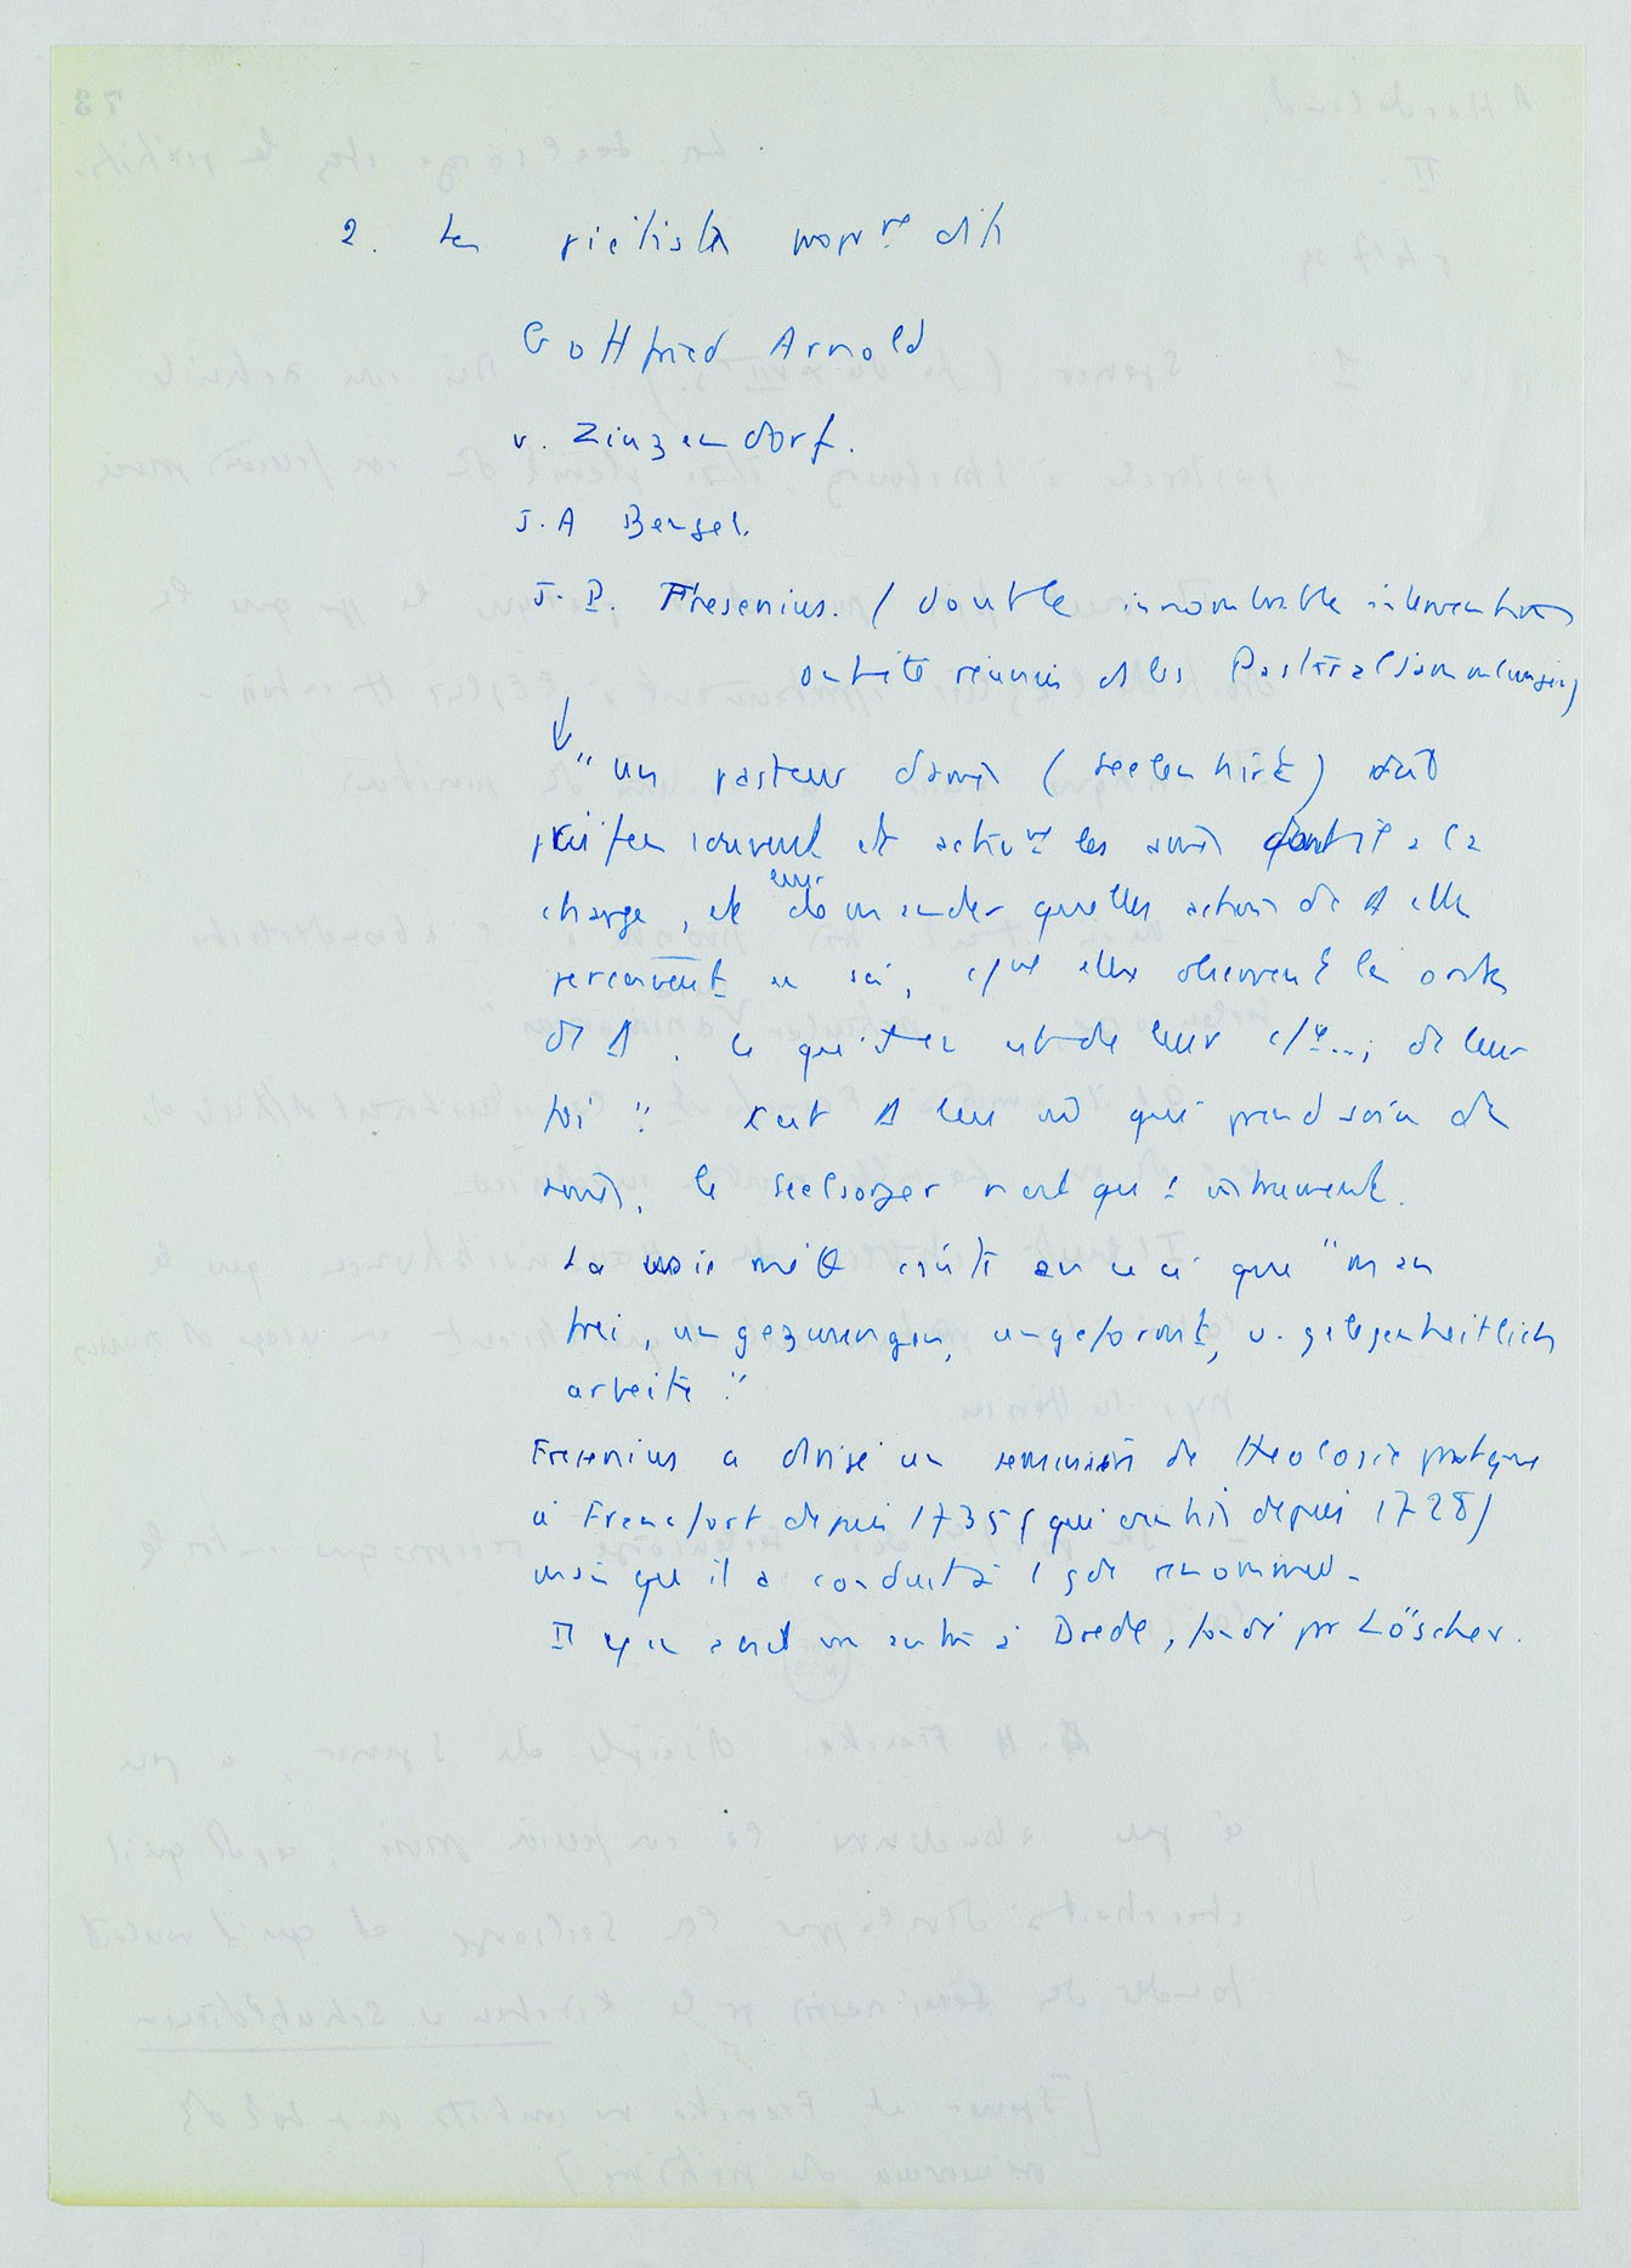 2. Les piétistes propr^e dits
Gottfried Arnold
v. Zinzendorf.
J. A Bengel.
J. P. Fresenius. (dont les innombrables interventions
ont été réunies ds les Pastoralsammlungen)
"un pasteur d'âmes (Seelenhirte) doit
souvent et activ^nt les âmes dont il a la
charge, et leur demander quelles actions de
perçoivent en soi, elles observent les ordres
de . ce qui en est de leur de leur
foi". C'est qui prend soin des
âmes, le Seelsorger n'est qu' instrument.
La consiste en ceci que "man
frei, ungezwungen, ungeformt, u. gelegenheitlich
arbeite."
Fresenius a dirigé un séminaire de théologie pratique
à Francfort depuis 1735 (qui existait depuis 1728)
mais qu'il a conduit à 1 gde renommée.
Il y en avait un autre à Dresde, fondé par Löscher.